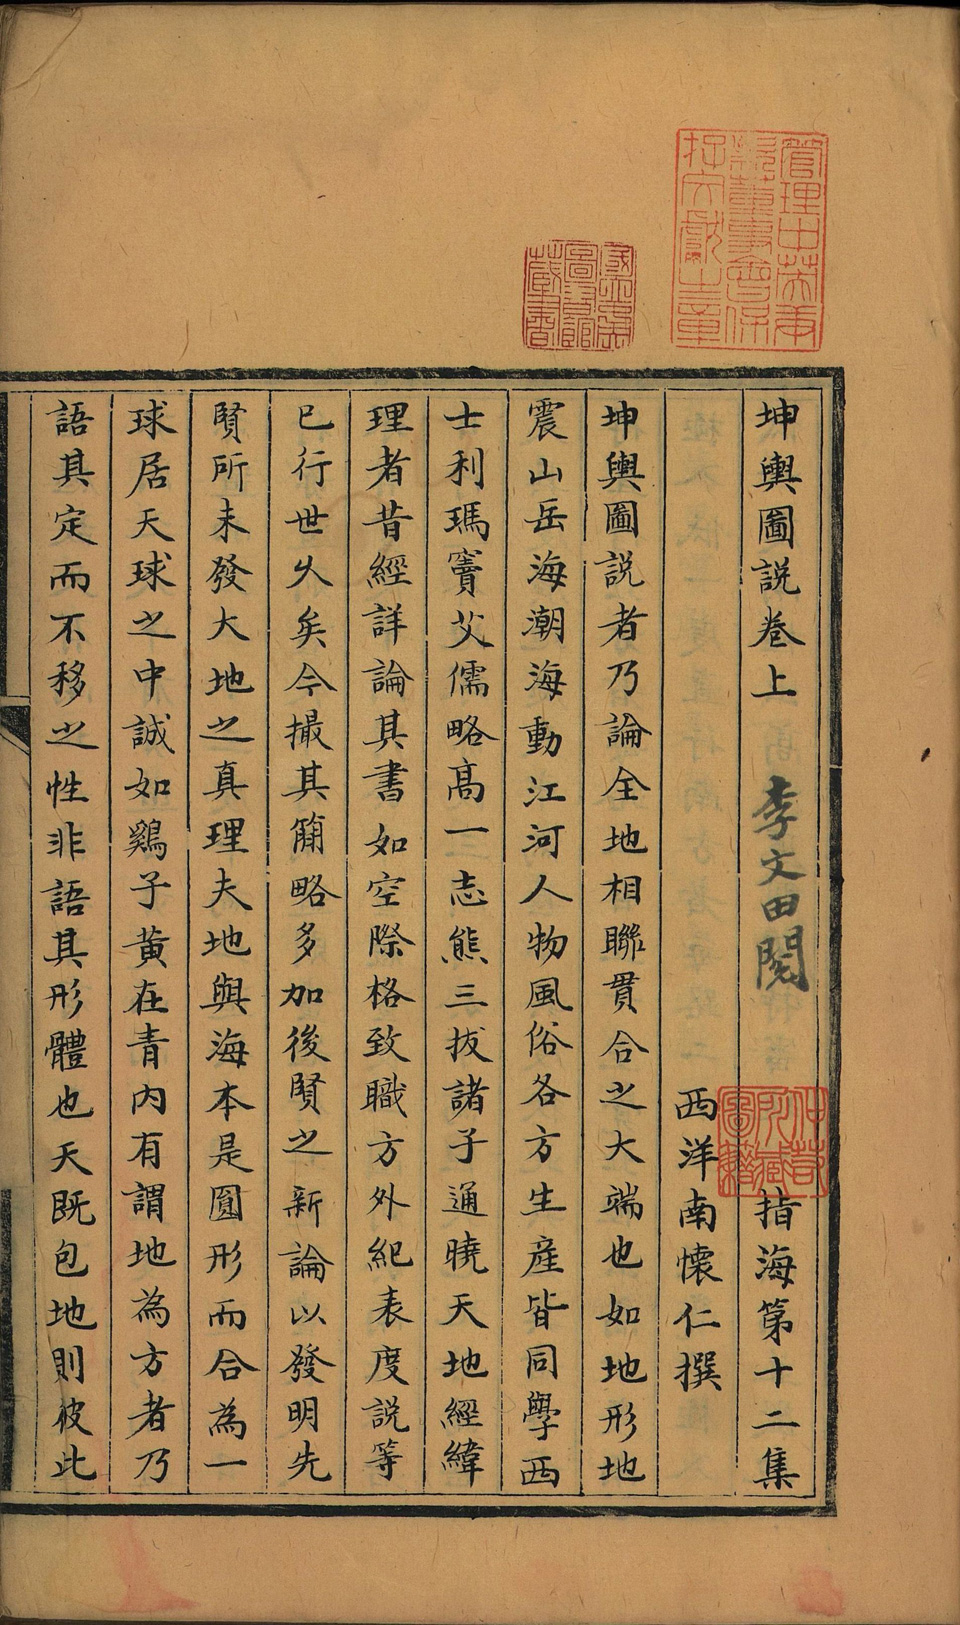 管理中英庚
款董事會保
存文獻之章
國立中央
圖書館
藏書
坤輿圖説卷上 李文田閱 指海第十二集
西洋南懷仁撰
坤輿圖説者乃論全地相聯貫合之大端也如地形地
震山岳海潮海動江河人物風俗各方生產皆同學西
士利瑪竇艾儒略高一志熊三拔諸子通曉天地經緯
理者昔經詳論其書如空際格致職方外紀表度説等
已行世久矣今撮其簡略多加後賢之新論以發明先
賢所未發大地之真理夫地與海本是圓形而合為一
球居天球之中誠如鷄子黃在青內有謂地為方者乃
語其定而不移之性非語其形體也天既包地則彼此